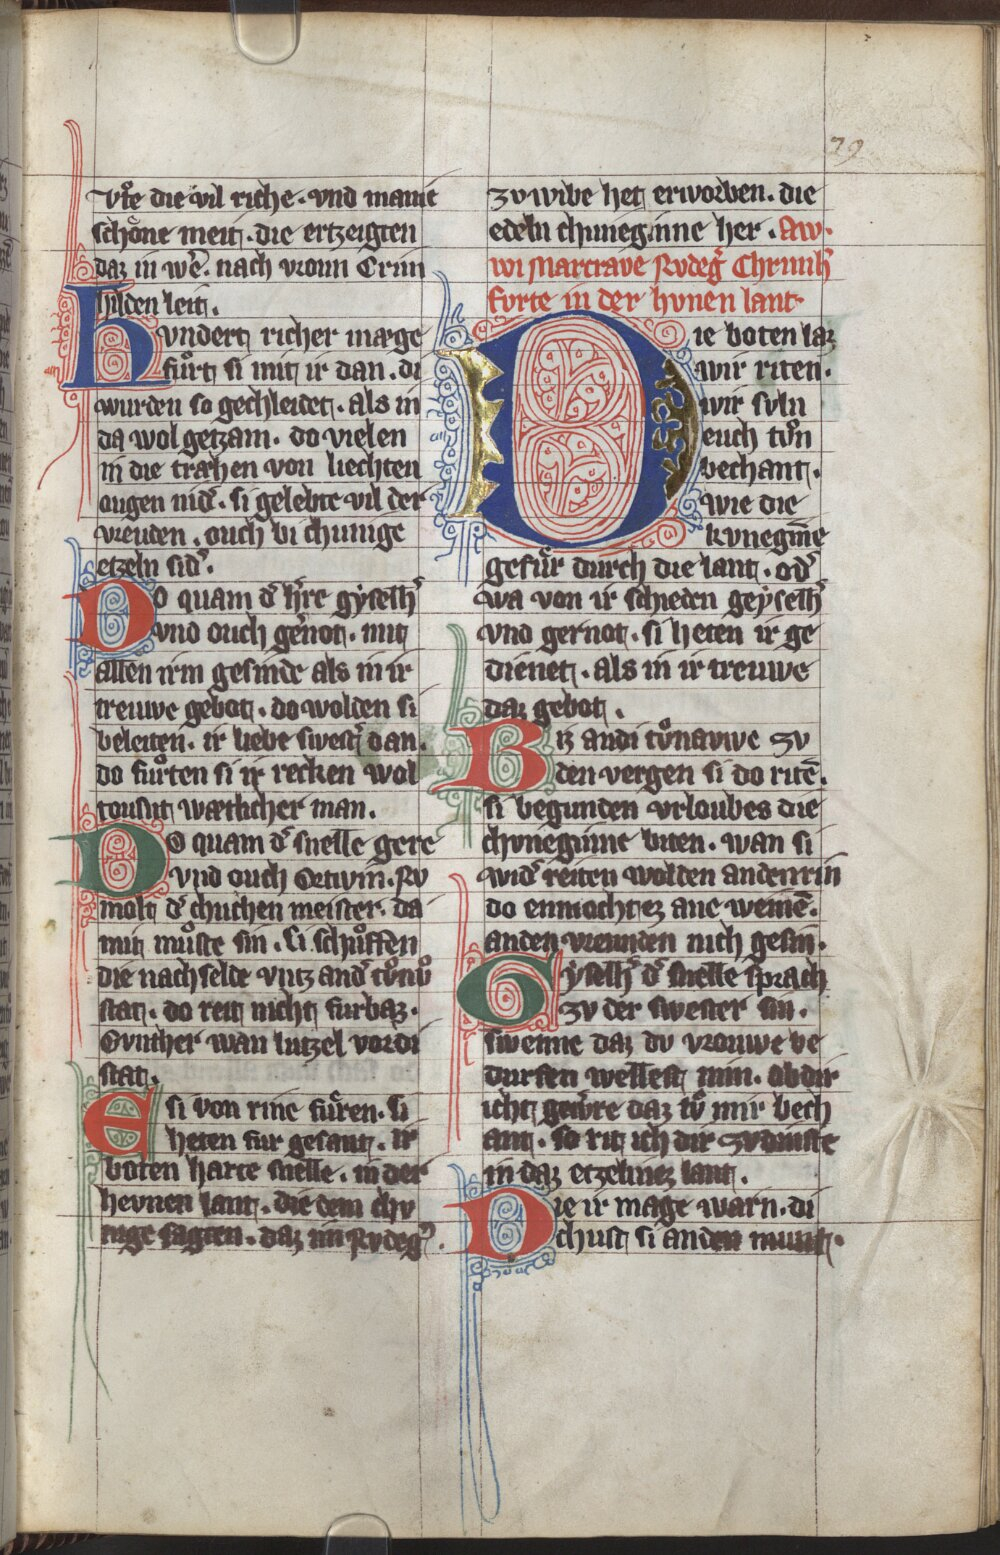 29
vͦte die vil riche. vnd manic
schoͤne meit. die ertzeigten
daz in we̅. nach vroun Crim
hilden leit.
Hvndert richer mæge
fuͦrt si mit ir dan. di
wurden so gechleidet. als in
da wol getzam. do vielen
in die træhen von liechten
ougen nid͛. si gelebte vil der
vreuden. ouch bi chunige
etzeln sid͛.
Do quam d͛ h͛re gyselh͛
vnd ouch ge͛not. mit
allen irm gesinde als in ir
treuwe gebot. do wolden si
beleiten. ir liebe swest͛ dan.
do fuͦrten si ir recken wol
tousint wætlicher man.
Do quam d͛ snelle gere
vnd ouch Ortwin. Rv
molt d͛ chuchen meister. da
mit muͦste sin. si schuͦffen
die nachselde vntz and͛ tuͦnov
stat. do reit nicht furbaz.
Gvnther wan lutzel vor di
stat.
E si von rine fuͦren. si
heten fur gesant. ir
boten harte snelle. in der
hevnen lant. die dem chv
nige sagten. daz im Rvdeg͛.
zv wibe het erworben. die
edeln chuneginne her. Aw.
wi Marcrave Rvdeg͛ Chrimh͛
fvrte in der hvnen lant.
Die boten laz
wir riten.
wir svln
euch tvͦn
bechant.
wie die
kvnegi̅ne
gefuͦr durch die lant. od͛
wa von ir schieden geyselh͛
vnd gernot. si heten ir ge
dienet. als in ir treuwe
daz gebot.
Biz an di tuͦnawe zv
den vergen si do rite̅.
si begunden vrloubes die
chvneginne biten. wan si
wid͛ reiten wolden anden rin
do enmocht ez ane weine̅.
anden vreunden nich gesin.
Gyselh͛ d͛ snelle sprach
zv der swester sin.
swenne daz dv vrouwe be
durfen wellest min. ob dir
icht gew͛re daz tuͦ mir bech
ant. so rit ich dir zv dinste
in daz etzelines lant.
Die ir mage warn. di
chust si anden munt.